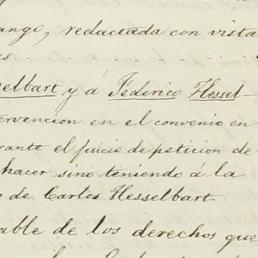 ango, redactada con vista
s
selbart y á Federico Hessel-
ervencion en el convenio en
rante el juicio de peticion de
hacer sino teniendo á la
s de Carlos Hesselbart.
able de los derechos que